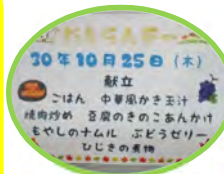 30年10月25日(木)
献立
ごはん 中華風かき玉汁
焼肉炒め 豆腐のきのこあんかけ
もやしのナムル ぶどうゼリー
ひじきの煮物